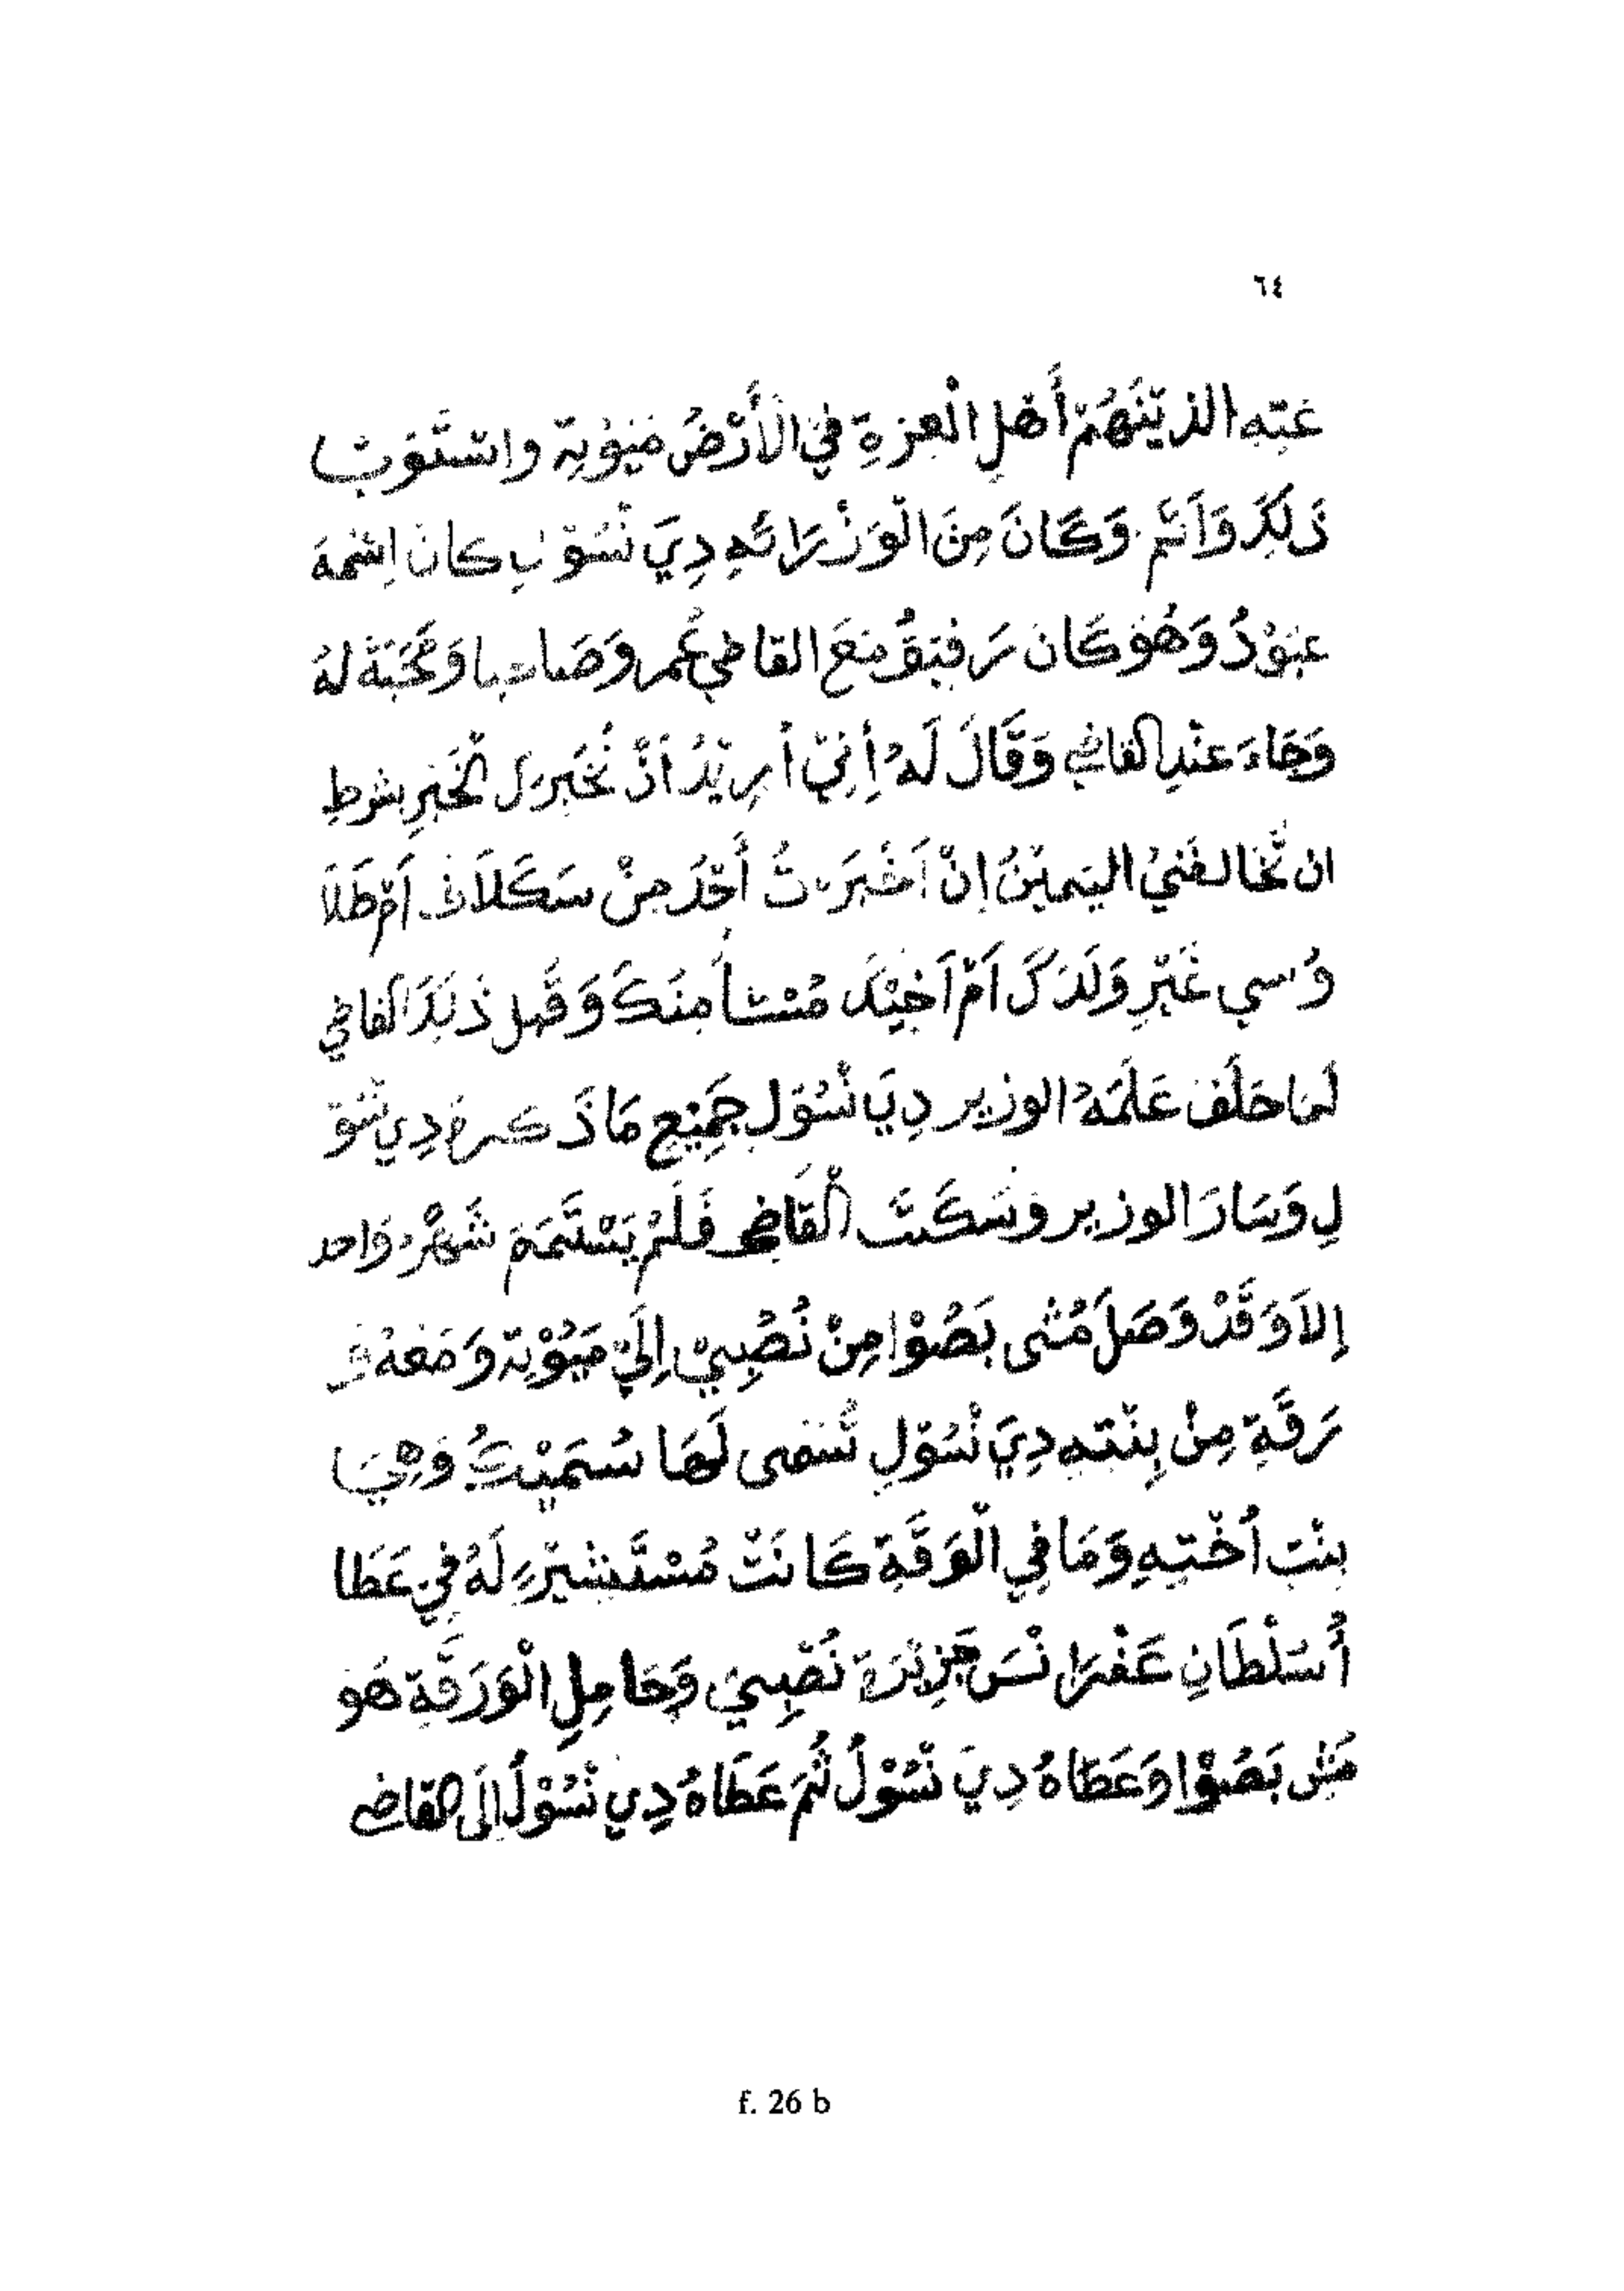 ٦٤
عَتِهِ الذيْنَهُمْ أَهْلِ الْعِزةِ فِيْ الْأَرْضُ مَيُوْتِهْ واسْتَوَتْ
ذَلِكَ وَاَتَمَّ وَكَانَ مِنَ الْوَزَرَائِهِ دِيَ نْسُوْلِ كان اِسْمَهُ
عَبَوْدُ وَهُوَ كَانَ رَفِيْقُ مَعَ القاضي عُمر وَصَاحِبا وَمَحَبَّةْ لهُ
وَجَاءَ عنْدِ القاضي وَقَالَ لَهُ أِنِيّ أُرِيْدُ أَنْ نُخَبِرَكَ الْخَبَرِ بشرطِ
ان تُحَالفَنيْ اليَمِيْنُ إنْ اَخْبَرْتُ أَحَدُ مِنْ سَكَلَافَ اَمْ طَلَا
وُسي غَيْرِ وَلَدَكَ اَمْ اَخِيْكَ مُنْشأ مِنَكَ وَقَبِل ذَلِكَ القاضي
لَمَا حَلَفَ عَلَمَهُ الوزير دِيَ نْسُوْلِ جَمِيْعِ مَا ذَكرهُ دِي نْسُوْ
لِ وَسَارَ الوزير وَسَكَتَ الْقَاضي فَلَمْ يَسْتَمَّمَ شَهْرُ وَاحد
إلاَ وَقَدْ وَصَلَ مُشى بَصُوْا مِنْ نُصْبِيْ اِلَيْ مَيُوْتِهْ وَمَعَهُ وَ
رَقَةِ مِنْ بِنْتِهِ دِيَ نْسُوْلِ تُسَمى لَهَا سُمَيْتُ وَهِيَ
بِنْتِ اُخْتِهِ وَمَا فِي الْوَقَةِ كَانَتْ مُسْتَشِيْرَةِ لَهُ فِيْ عَطَا
اُسَلْطَانِ عَفْرَا نْسَ جَزِيْرَةْ نُصْبِيَ وَحَامِلِ الْوَرَقَةِ هَوَ
مَشى بَصُوْا وَعَطَاهُ دِيَ نْسُوْلُ ثُمَ عَطَاهُ دِي نْسُوْلُ اِلَى القاضي
f. 26 b